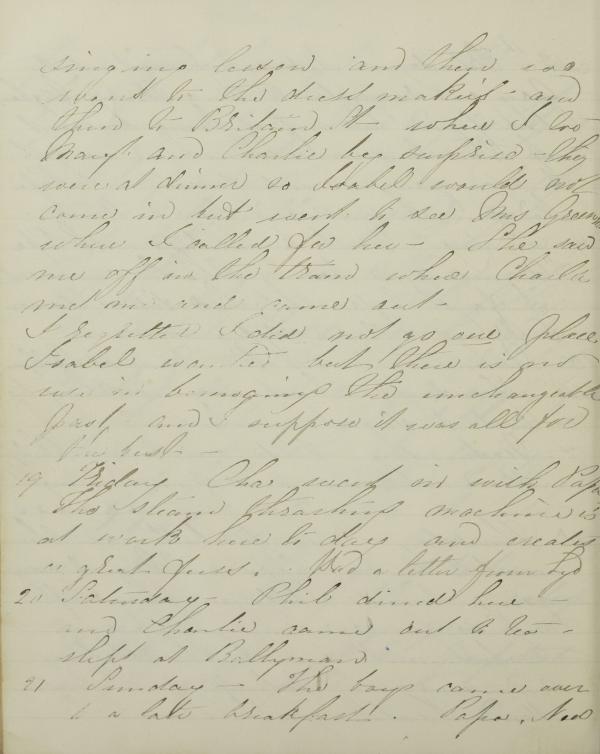 singing lesson and then we
went to the dress makers - and
then to Britain St where I too
Mary and Charlie by surprise - they
were at dinner so Isabel would not
come in but went to see Mrs Greene
where I called for her - She saw
me off in the tram where Charlie
met me and came out -
I regretted I did not go one place
Isabel wanted but there is no
use in bemoaning the unchangeable
past, and I suppose it was all for
the best -
19 Friday Cha went in with Papa
The steam thrashing machine is
at work here to day and creates
a great fuss. Had a letter from
20 Saturday - Phil dined here -
and Charlie came out to tea -
slept at Ballyman
21 Sunday - The boys came over
to a late breakfast. Papa, Ned